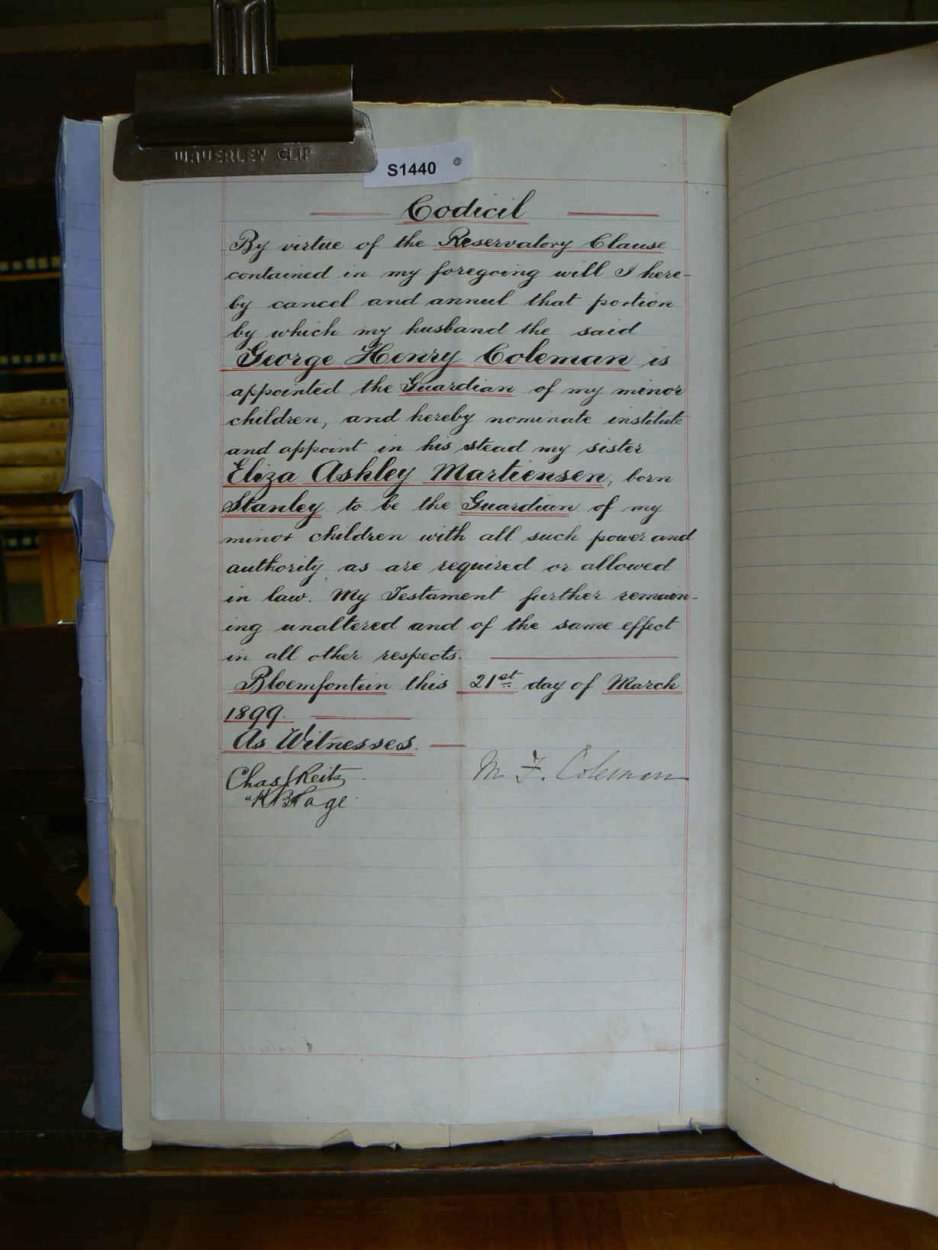 WAVERLEY CLIP
S1440
Codicil
By virtue of the Reservatory Clause
contained in my foregoing will I here-
by cancel and annul that portion
by which my husband the said
George Henry Coleman is
appointed the Guardian of my minor
children, and hereby nominate institute
and appoint in his stead my sister
Eliza Ashley Martiensen, born
Stanley to be the Guardian of my
minor children with all such power and
authority as are required or allowed
in law. My Testament further remain-
ing unaltered and of the same effect
in all other respects.
Bloemfontein this 21st day of March
1899.
As Witnesses.
Chas J Reitz M. F. Coleman
Page